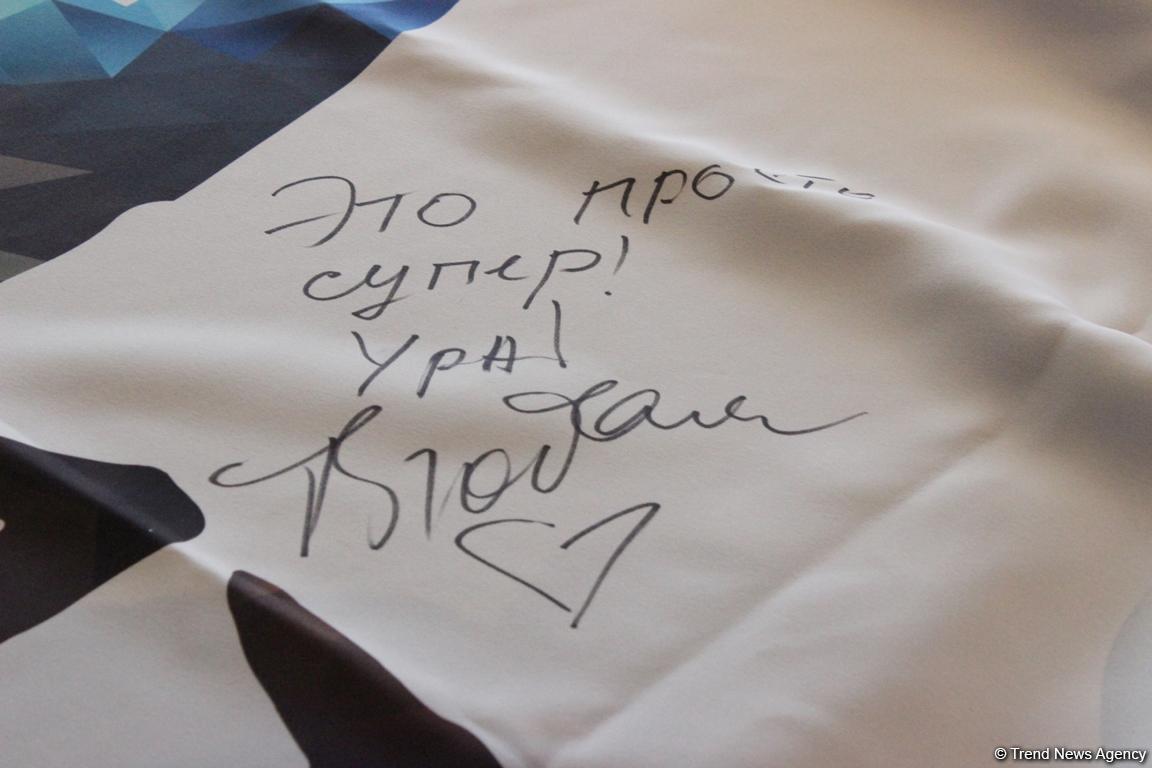 Это просто
супер!
Ура!
© Trend News Agency